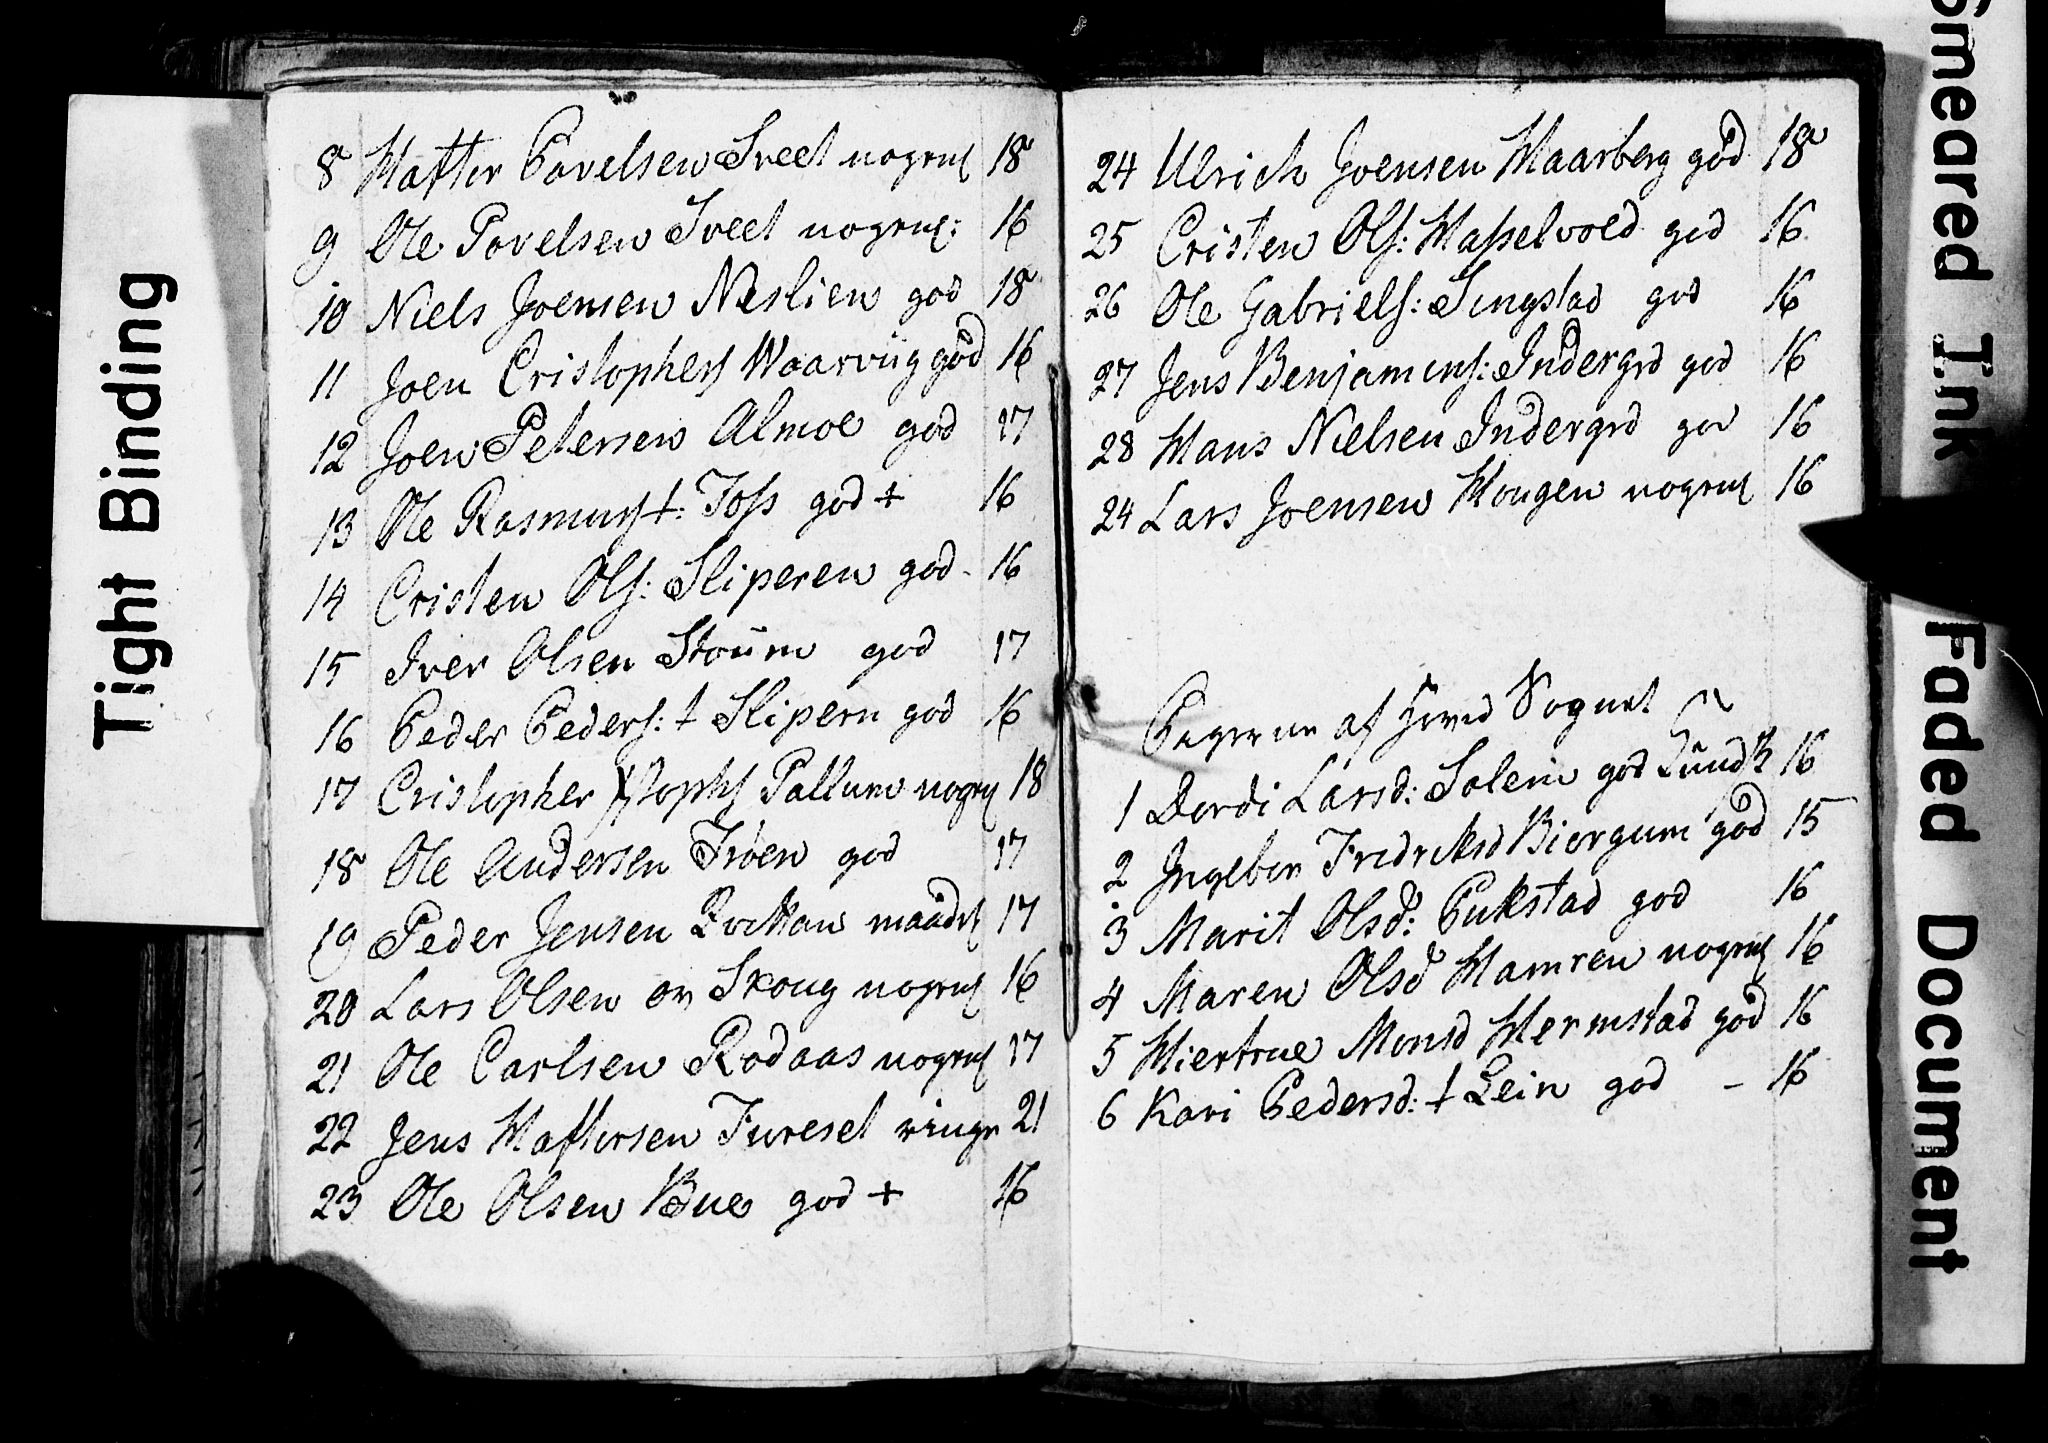 Tight Binding
8 Hafter Povelsen Sveet nogenl 18
9 Ole Povelsen Sveet nogenl: 16
10 Niels Joensen Neslien god 18
11 Joen Cristophers Waarviig god 16
12 Joen Petersen Almoe god 17
13 Ole Rasmuss +: Foss god + 16
14 Cristen Ols: Sliperen god - 16
15 Iver Olsen Stoüm god 17
16 Peder Peders: + Slipern god 16
17 Cristopher Pallum nogenl 18
18 Ole Andersen Trøen god 17
19 Peder Jensen maadel 17
20 Lars Olsen Skoug nogenl 16
21 Ole Carlsen Rodaas nogenl 17
22 Jens Haftorsen Fureset ringe 21
23 Ole Olsen Bue god + 16
24 Ulrich Joensen Haarberg god 18
25 Cristen Ols: Hasselvold god 16
26 Ole Gabriels: Singstad god 16
27 Jens Benjamins: Indergrd god 16
28 Hans Nielsen Indergrd god 16
24 Lars Joensen Hougen nogenl 16
Pigerne af Sognet
1 Dordi Larsd: Solem god 16
2 Ingebor Fredriksd Biergum god 15
3 Marit Olsd: Pukstad god 16
4 Maren Olsd Hamren nogenl 16
5 Hiertrue Monsd Hermstad god 16
6 Kari Pedersd: + Lein god - 16
Smeared Ink
Faded Document